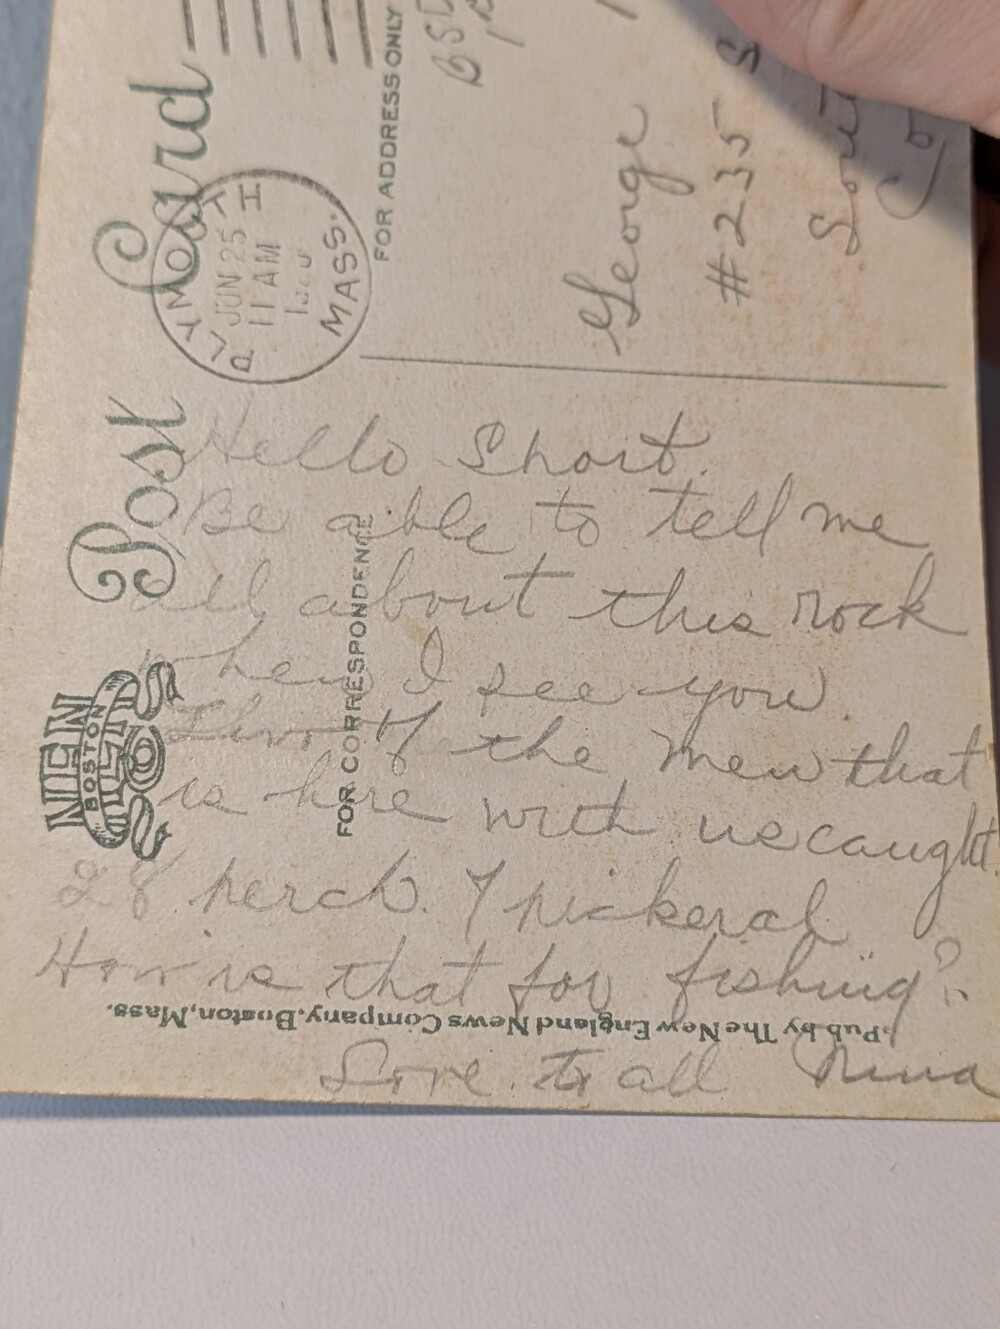 Post Card
NEN
BOSTON
PLYMOUTH
JUN 25
11 AM
MASS.
FOR ADDRESS ONLY
FOR CORRESPONDENCE
George
#235 S
Hello Short.
Be able to tell me
all about this rock
when I see you
Two of the men that
is here with us caught
28 perch. 7 pickeral
How is that for fishing?
Love to all Nina
Pub. by The New England News Company, Boston, Mass.